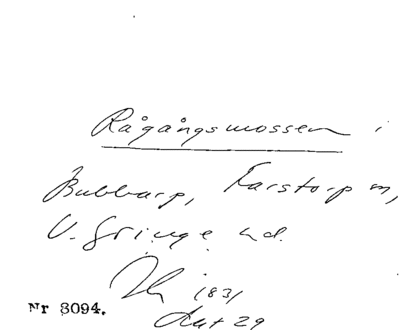 Rågångsmossen i
Bubbarp, Farstorp m,
V. Göinge hd.
1831
Nr 3094.
29